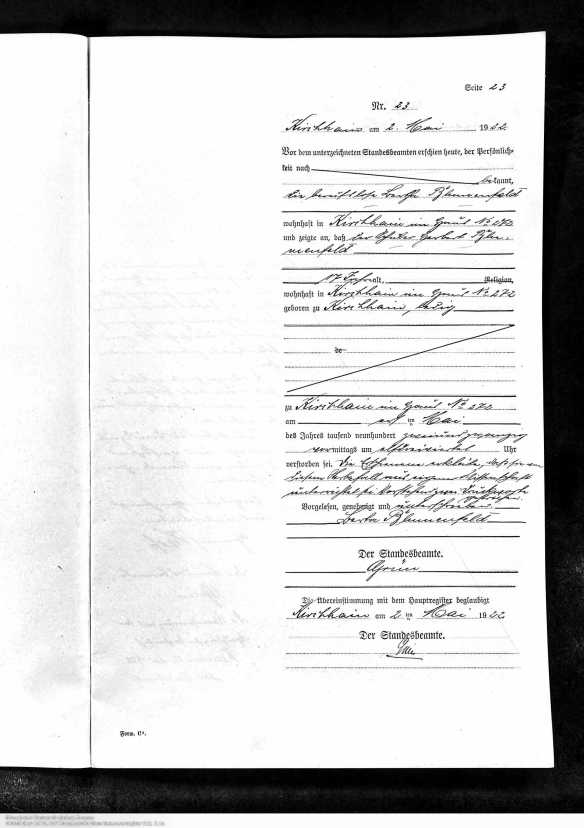 Seite 23
Nr. 23
Kirchhain am 2. Mai 1922
Vor dem unterzeichneten Standesbeamten erschien heute, der Persönlich-
keit nach
bekannt,
die berufslose Berta Blumenfeld
wohnhaft in Kirchhain im Haus No 272
und zeigte an, daß der Schüler Herbert Blu-
menfeld
17 Jahre alt, Religion,
wohnhaft in Kirchhain im Haus No 272
geboren zu Kirchhain, ledig
de
zu Kirchhain im Haus No 272
am ten Mai
des Jahres tausend neunhundert zweiundzwanzig
vormittags um Uhr
verstorben sei. Die erklärte, daß sie von
diesem Sterbefall aus eigener Wissenschaft
unterrichtet sei. Vorstehend Druckworte
gestrichen.
Vorgelesen, genehmigt und unterschrieben
Berta Blumenfeld
Der Standesbeamte.
Die Übereinstimmung mit dem Hauptregister beglaubigt
Kirchhain am 2 ten Mai 1922
Der Standesbeamte.
Form. C*.